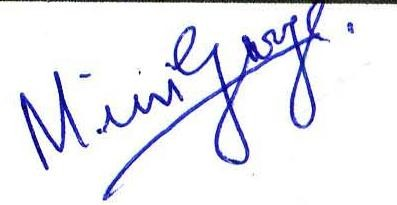 Mini George.